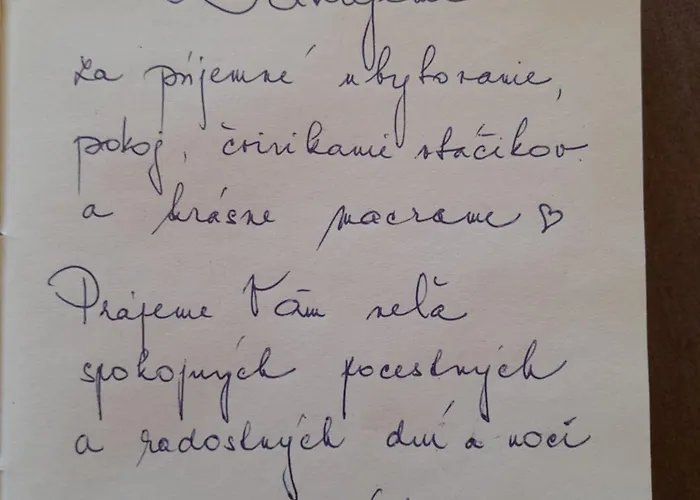 Ďakujeme
za príjemné ubytovanie,
pokoj, čvirikanie vtáčikov
a krásne macrame ♡
Prajeme Vám veľa
spokojných pocestných
a radostných dní a nocí